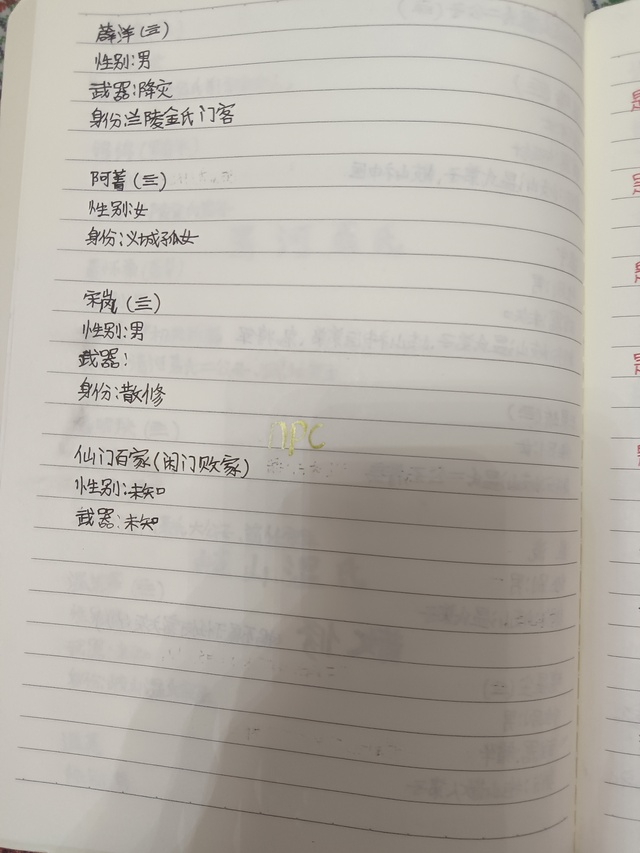 薛洋(三)
性别:男
武器:降灾
身份:兰陵金氏门客
阿菁(三)
性别:女
身份:义城孤女
宋岚(三)
性别:男
武器:
身份:散修
npc
仙门百家(闲门败家)
性别:未知
武器:未知